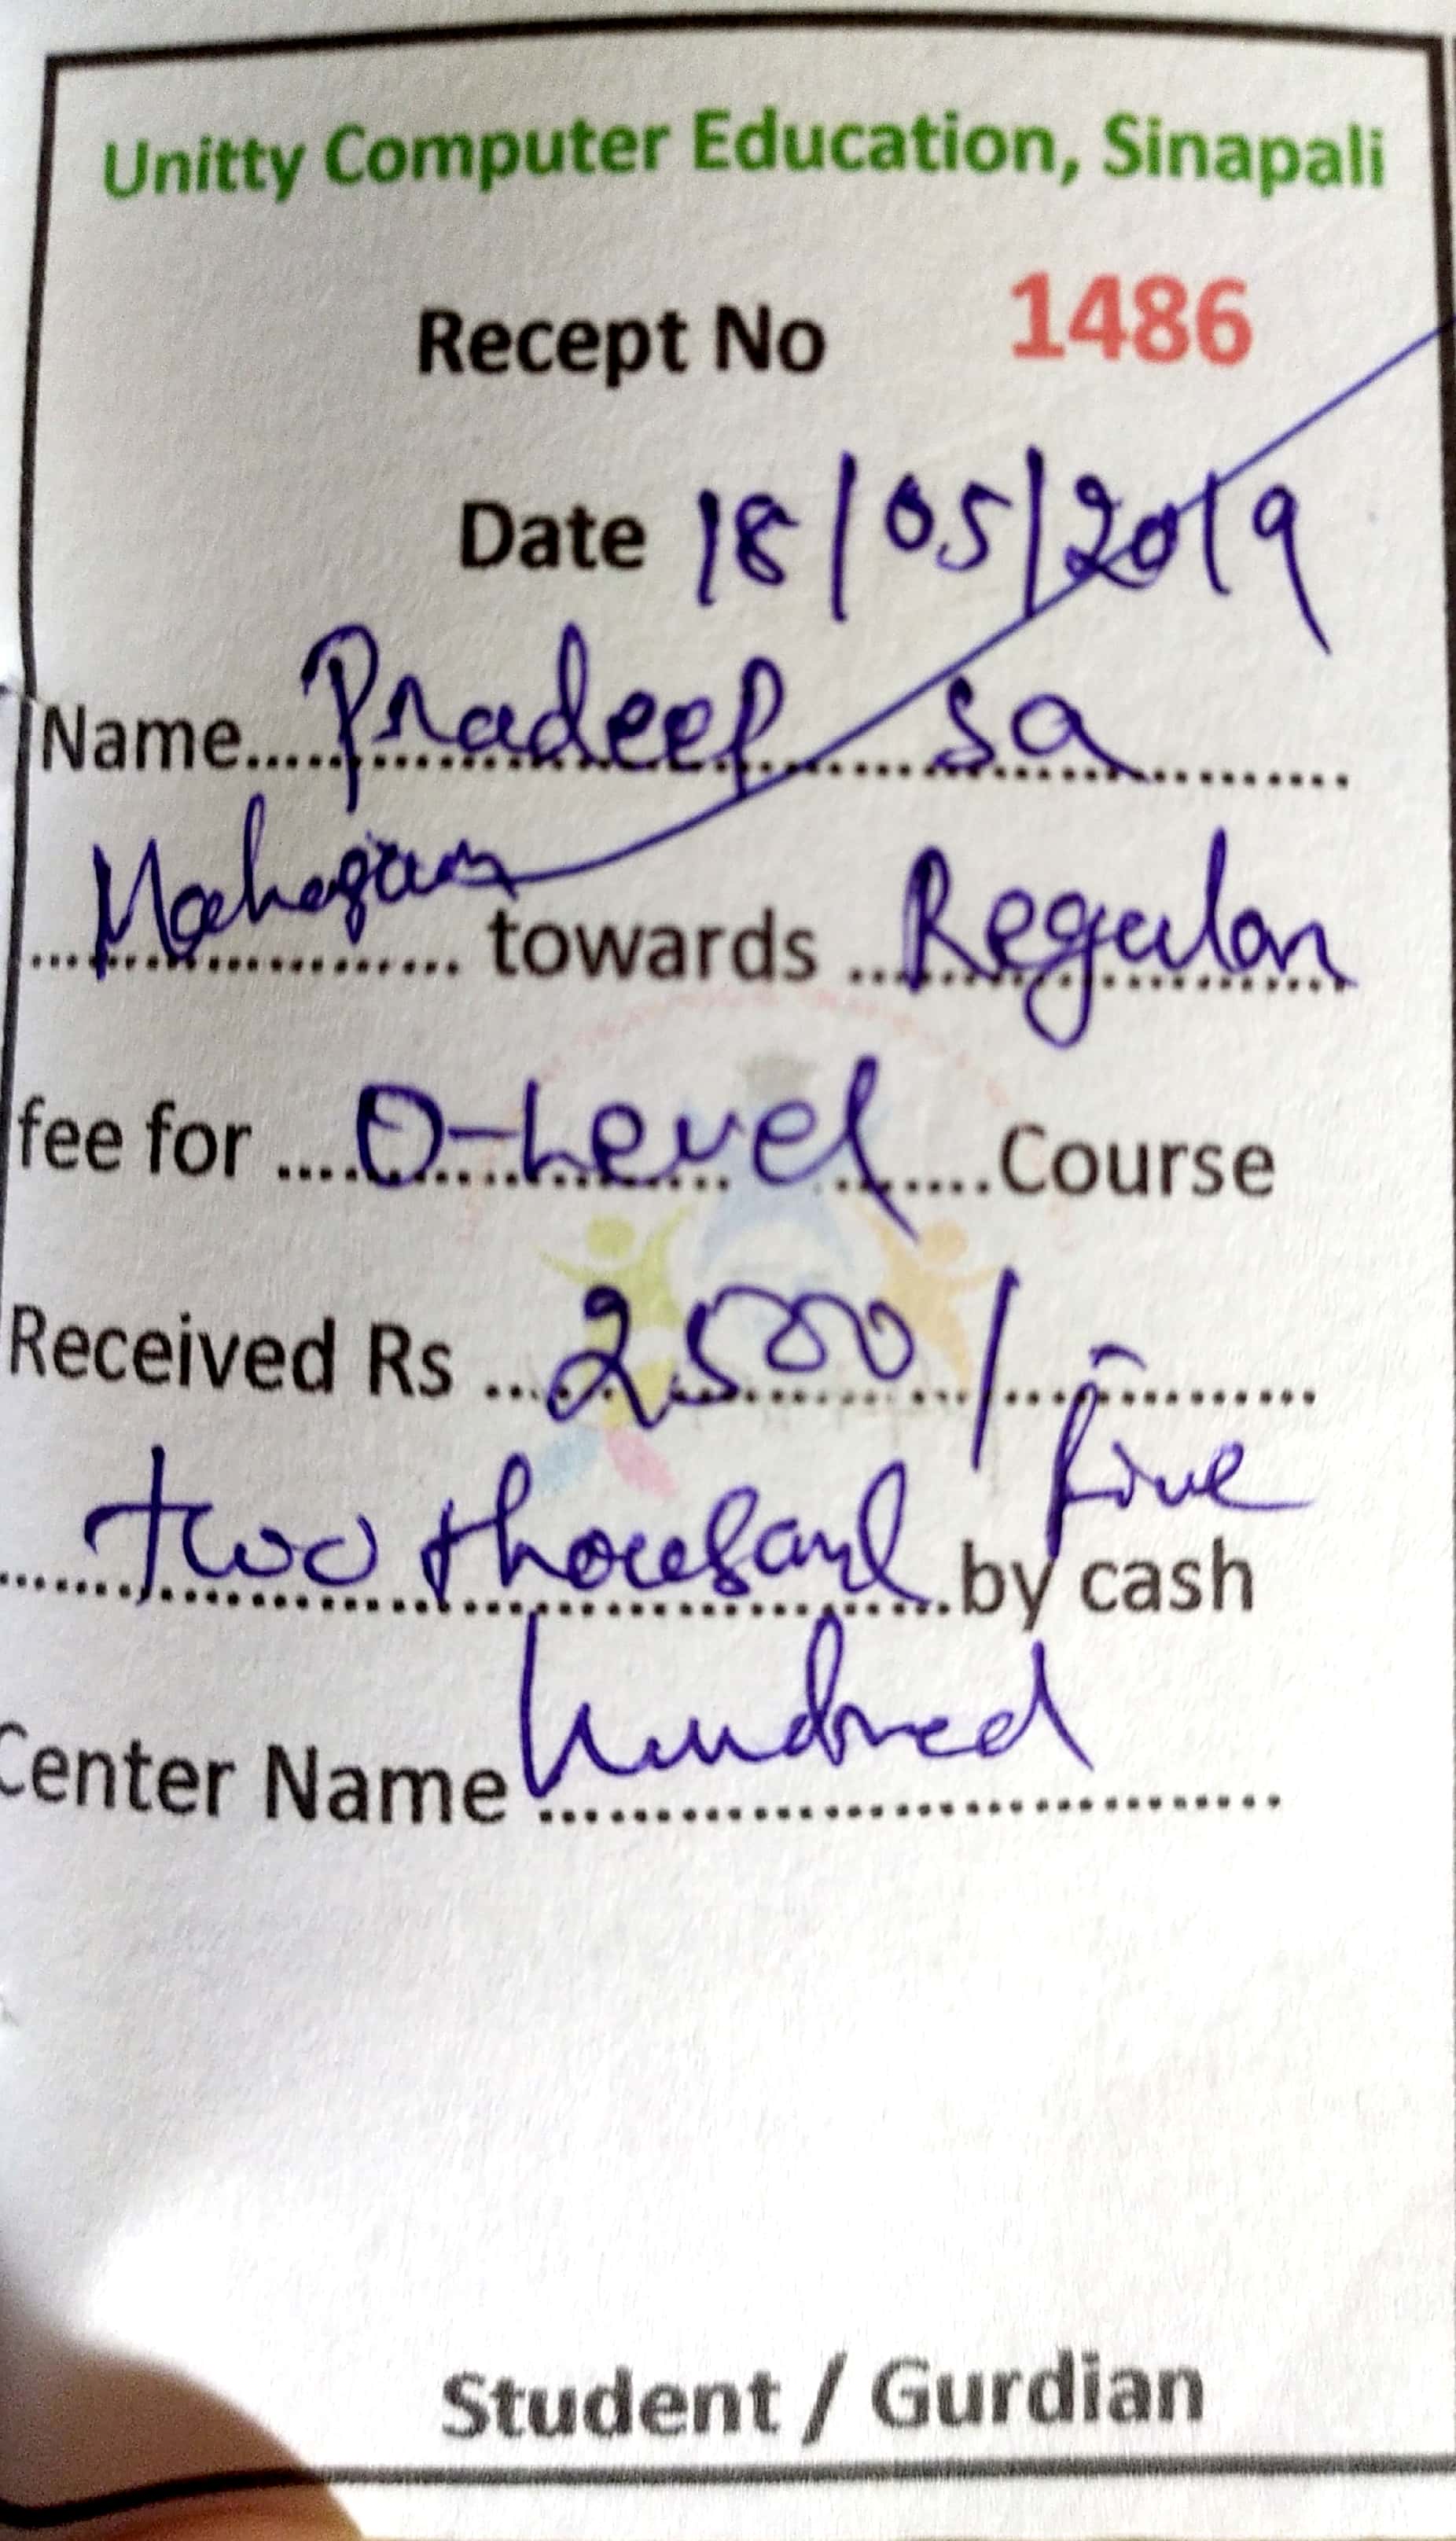 Unitty Computer Education, Sinapali
Recept No 1486
Date 18/05/2019
Name Pradeep Sa
towards Regular
fee for O-Level Course
Received Rs 2500/-
two thousand five by cash
hundred
Center Name
Student / Gurdian